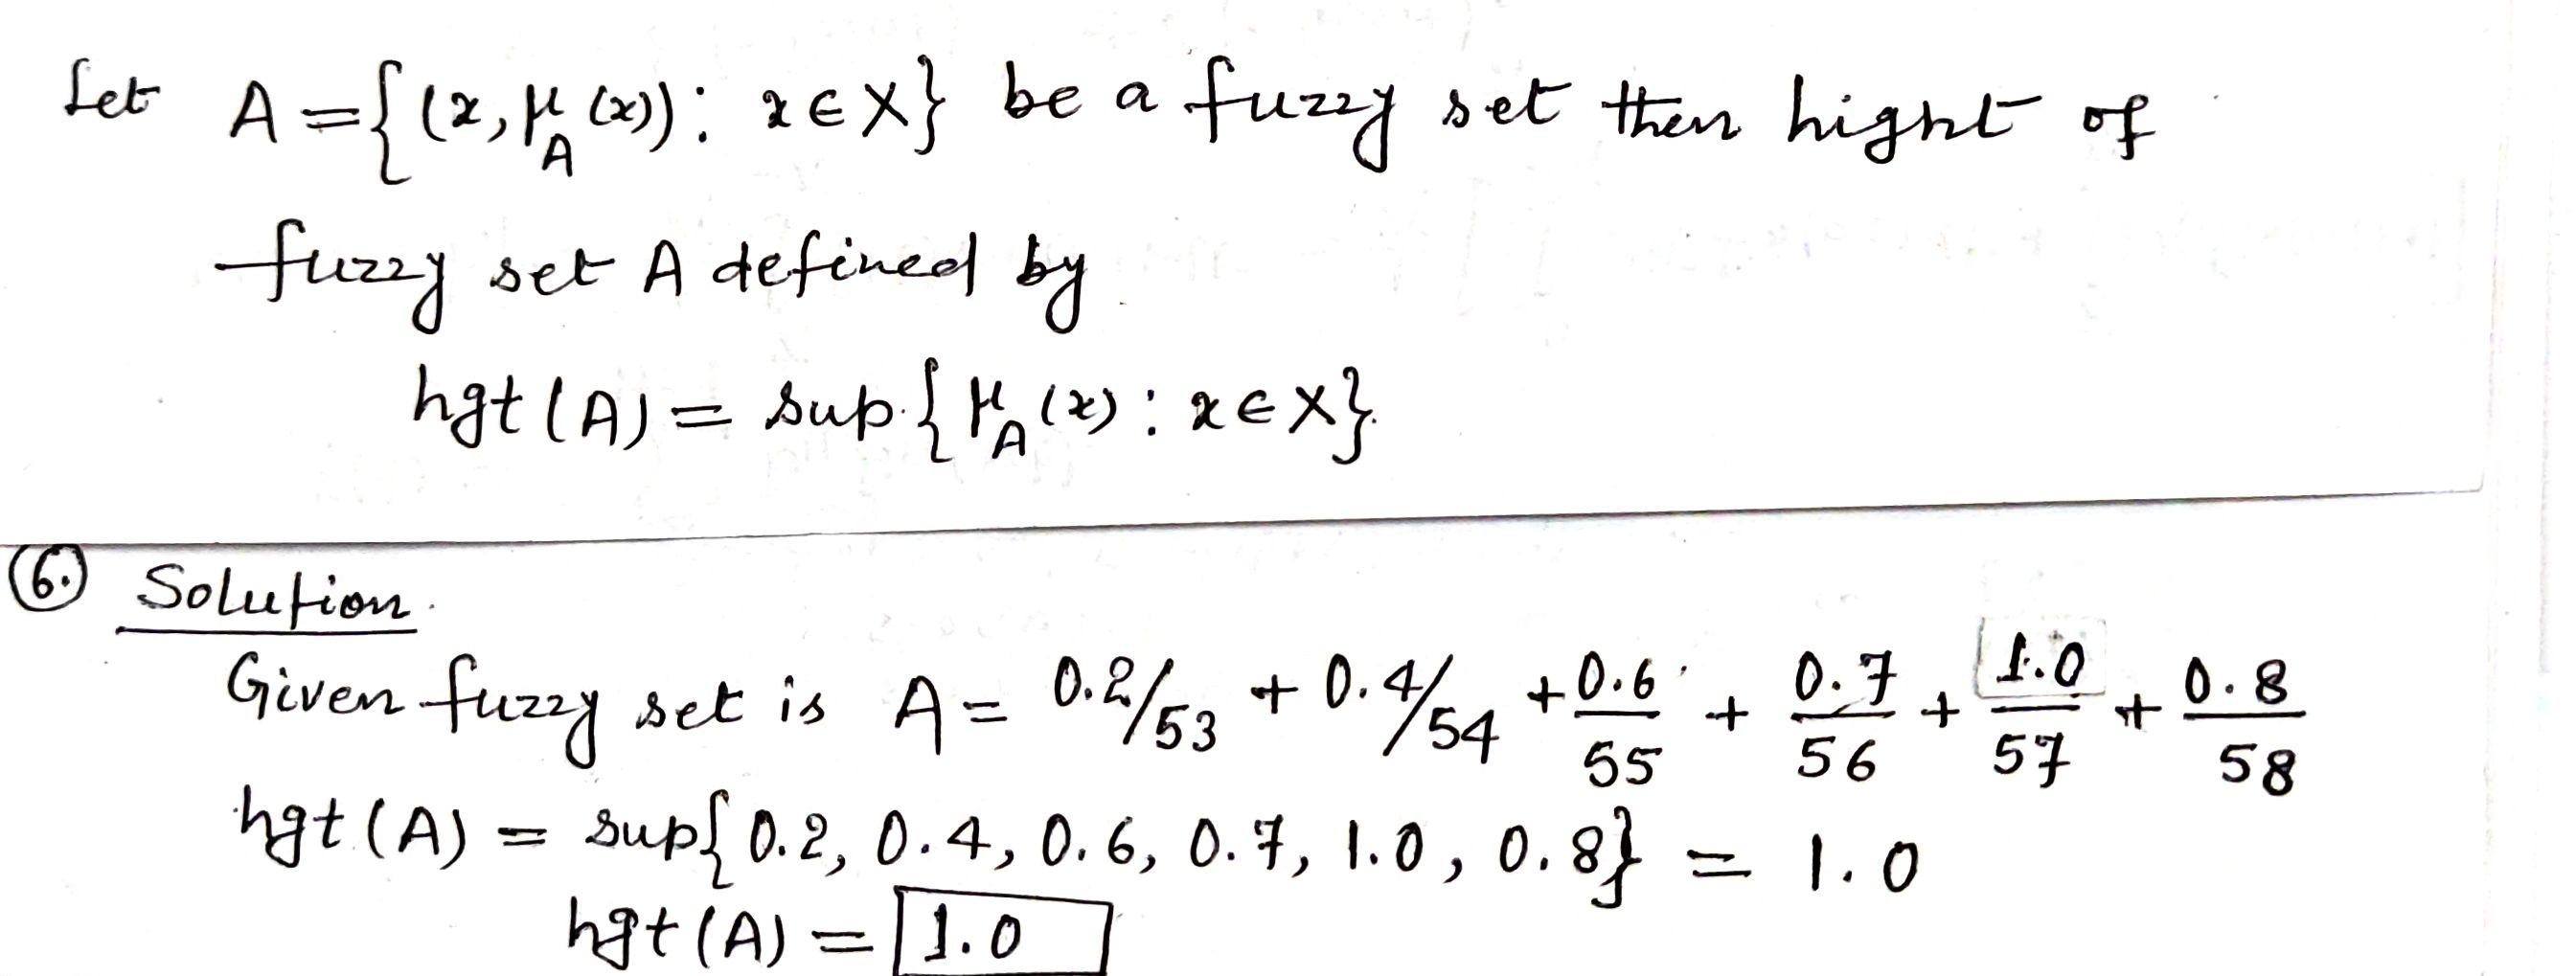 Let A = {(x, μ_A(x)) : x ∈ X} be a fuzzy set then hight of
fuzzy set A defined by
hgt(A) = sup.{μ_A(x) : x ∈ X}.
6. Solution.
Given fuzzy set is A = 0.2/53 + 0.4/54 + 0.6/55 + 0.7/56 + 1.0/57 + 0.8/58
hgt(A) = sup{0.2, 0.4, 0.6, 0.7, 1.0, 0.8} = 1.0
hgt(A) = 1.0